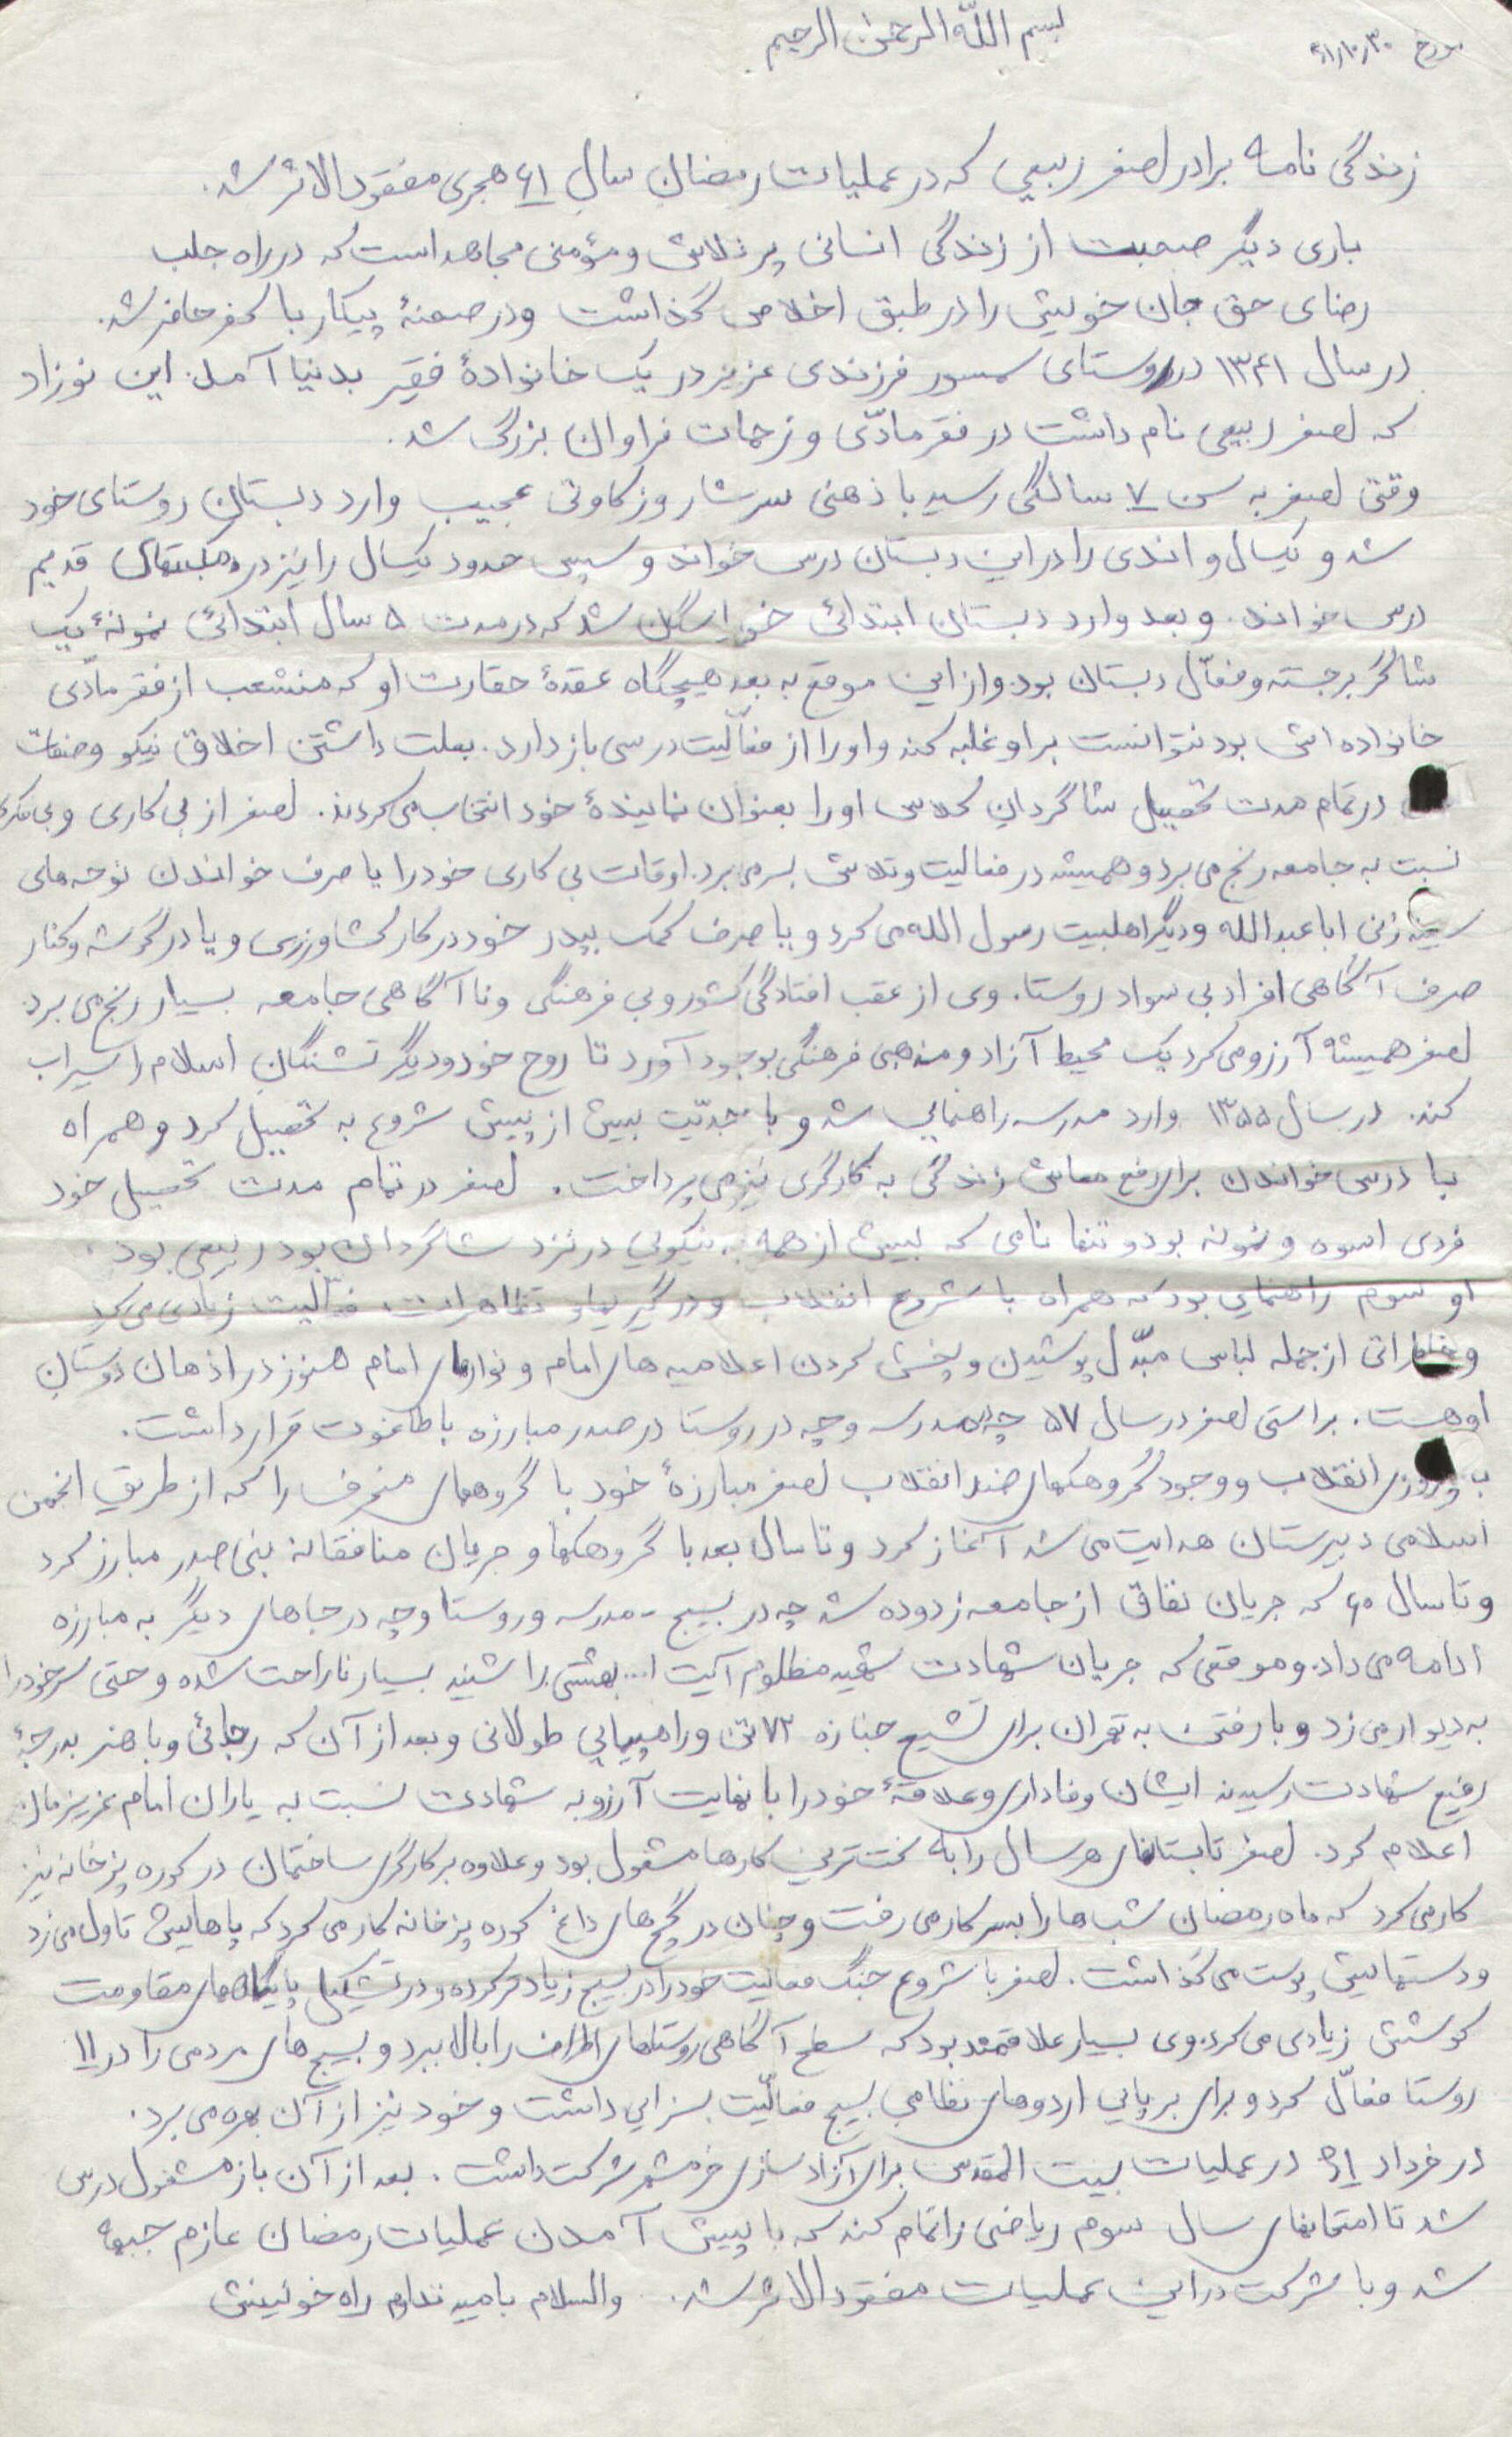 بسم اللّه الرحمن الرحیم
مورخ ۶۱/۱۰/۳۰
زندگی نامه برادر اصغر ربیعی که در عملیات رمضان سال ۶۱ هجری مفقودالاثر شد.
باری دیگر صحبت از زندگی انسانی پر تلاش و مؤمنی مجاهد است که در راه جلب
رضای حق جان خویش را در طبق اخلاص گذاشت و در صحنهٔ پیکار با کفر حاضر شد.
در سال ۱۳۴۱ در روستای سمسور فرزندی عزیز در یک خانوادهٔ فقیر بدنیا آمد. این نوزاد
که اصغر ربیعی نام داشت در فقر مادّی و زحمات فراوان بزرگ شد.
وقتی اصغر به سن ۷ سالگی رسید با ذهنی سرشار و زکاوتی عجیب وارد دبستان روستای خود
شد و یکسال و اندی را در این دبستان درس خواند و سپس حدود یکسال را نیز در قدیم
درس خواند. و بعد وارد دبستان ابتدائی خوراسگان شد که در مدت ۵ سال ابتدائی نمونهٔ یک
شاگرد برجسته و فعّال دبستان بود. و از این موقع به بعد هیچگاه عقدهٔ حقارت او که منشعب از فقر مادّی
خانواده اش بود نتوانست بر او غلبه کند و او را از فعّالیت درسی باز دارد. بعلت داشتن اخلاق نیکو و صفات
در تمام مدت تحصیل شاگردان کلاس او را بعنوان نمایندهٔ خود انتخاب می کردند. اصغر از بی کاری و بی فکری
نسبت به جامعه رنج می برد و همیشه در فعالیت و تلاش بسر می برد. اوقات بی کاری خود را یا صرف خواندن نوحه های
سینه زنی ابا عبدالله و دیگر اهلبیت رسول الله می کرد و یا صرف کمک بپدر خود در کار کشاورزی و یا در گوشه و کنار
صرف آگاهی افراد بی سواد روستا. وی از عقب افتادگی کشور و بی فرهنگی و نا آگاهی جامعه بسیار رنج می برد.
اصغر همیشه آرزو می کرد یک محیط آزاد و مذهبی فرهنگی بوجود آورد تا روح خود و دیگر تشنگان اسلام را سیراب
کند. در سال ۱۳۵۵ وارد مدرسه راهنمایی شد و با جدیّت بیش از پیش شروع به تحصیل کرد و همراه
با درس خواندن برای رفع معاش زندگی به کارگری نیز می پرداخت. اصغر در تمام مدت تحصیل خود
فردی اسوه و نمونه بود و تنها نامی که بیش از همه به نیکویی در نزد شاگردان بود ربیعی بود.
او سوم راهنمایی بود که همراه با شروع انقلاب و درگیریها و تظاهرات فعّالیت زیادی می کرد
و خاطراتی از جمله لباس مبدّل پوشیدن و پخش کردن اعلامیه های امام و نوارهای امام هنوز در اذهان دوستان
او هست. براستی اصغر در سال ۵۷ چه در مدرسه و چه در روستا در صدر مبارزه با طاغوت قرار داشت.
با پیروزی انقلاب و وجود گروهکهای ضد انقلاب اصغر مبارزهٔ خود با گروههای منحرف را که از طریق انجمن
اسلامی دبیرستان هدایت می شد آغاز کرد و تا سال بعد با گروهکها و جریان منافقانه بنی صدر مبارز کرد
و تا سال ۶۰ که جریان نفاق از جامعه زدوده شد چه در بسیج - مدرسه و روستا و چه در جاهای دیگر به مبارزه
ادامه می داد. و موقعی که جریان شهادت شهید مظلوم آیت ا... بهشتی را شنید بسیار ناراحت شده و حتی سر خود را
به دیوار می زد و با رفتن به تهران برای تشییع جنازه ۷۲ تن و راهپیمایی طولانی و بعد از آن که رجائی و باهنر بدرجهٔ
رفیع شهادت رسیدند ایشان وفاداری و علاقهٔ خود را با نهایت آرزو به شهادت نسبت به یاران امام عزیزمان
اعلام کرد. اصغر تابستانهای هر سال را به سخت ترین کارها مشغول بود و علاوه بر کارگری ساختمان در کوره پزخانه نیز
کار می کرد که ماه رمضان شب ها را بسر کار می رفت و چنان در گچ های داغ کوره پزخانه کار می کرد که پاهایش تاول می زد
و دستهایش پوست می گذاشت. اصغر با شروع جنگ فعالیت خود را در بسیج زیادتر کرده و در تشکیل پایگاههای مقاومت
کوشش زیادی می کرد. وی بسیار علاقمند بود که سطح آگاهی روستاهای اطراف را بالا ببرد و بسیج های مردمی را در ۱۱
روستا فعّال کرد و برای برپایی اردوهای نظامی بسیج فعالّیت بسزایی داشت و خود نیز از آن بهره می برد.
در خرداد ۶۱ در عملیات بیت المقدس برای آزاد سازی خرمشهر شرکت داشت. بعد از آن باز مشغول درس
شد تا امتحانهای سال سوم ریاضی را تمام کند که با پیش آمدن عملیات رمضان عازم جبهه
شد و با شرکت در این عملیات مفقودالاثر شد. والسلام بامید تداوم راه خونینش